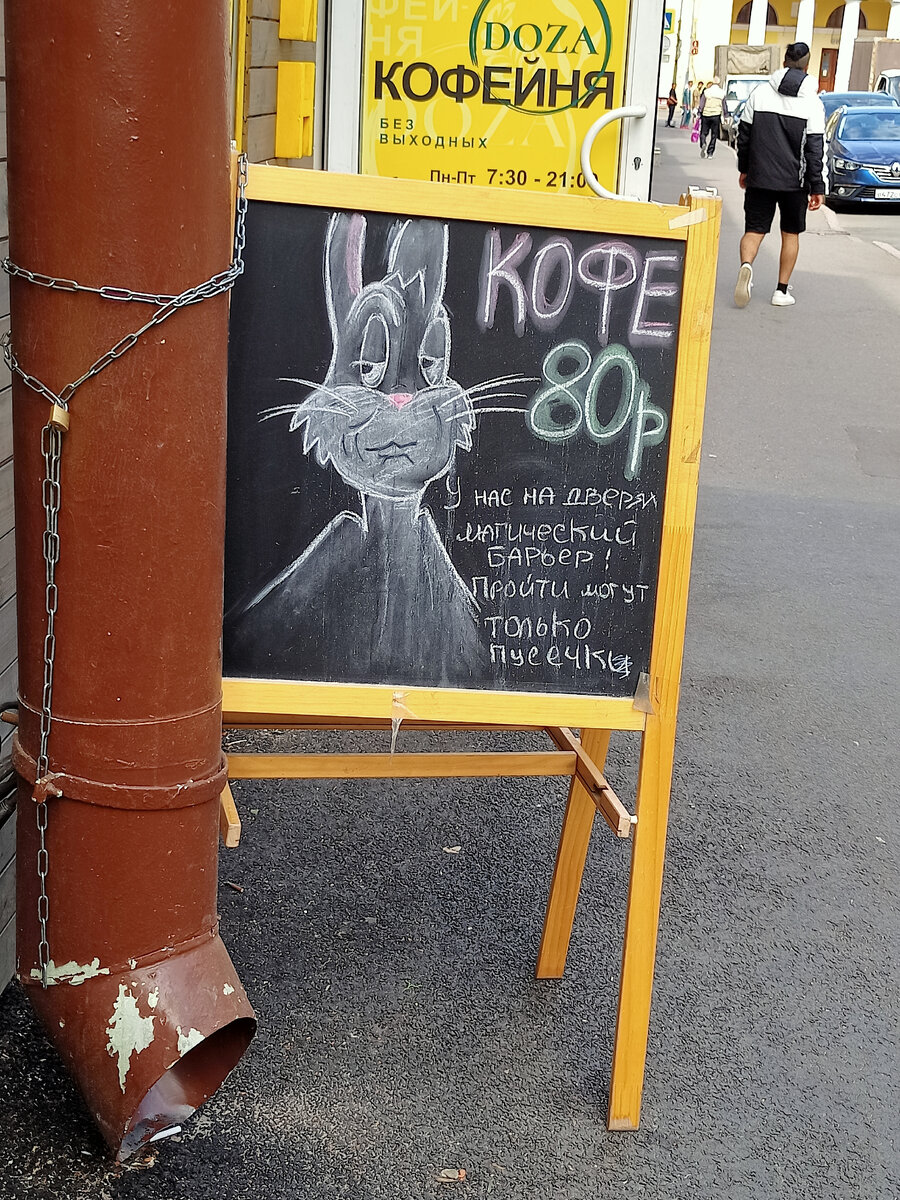 DOZA
КОФЕЙНЯ
БЕЗ
ВЫХОДНЫХ
Пн-Пт 7:30 - 21:00
КОФЕ
80р
У НАС НА ДВЕРЯХ
МАГИЧЕСКИЙ
БАРЬЕР!
ПРОЙТИ МОГУТ
ТОЛЬКО
ПУСЕЧКИ